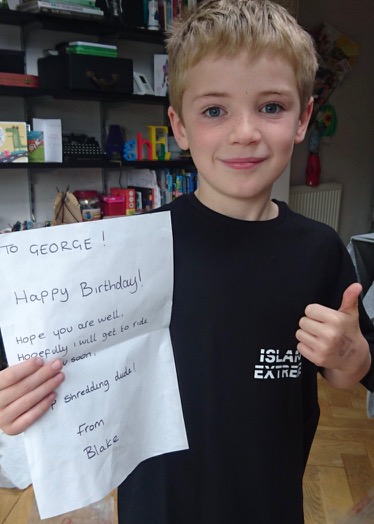 TO GEORGE !
Happy Birthday!
Hope you are well,
Hopefully i will get to ride
soon,
shredding dude!
From
Blake